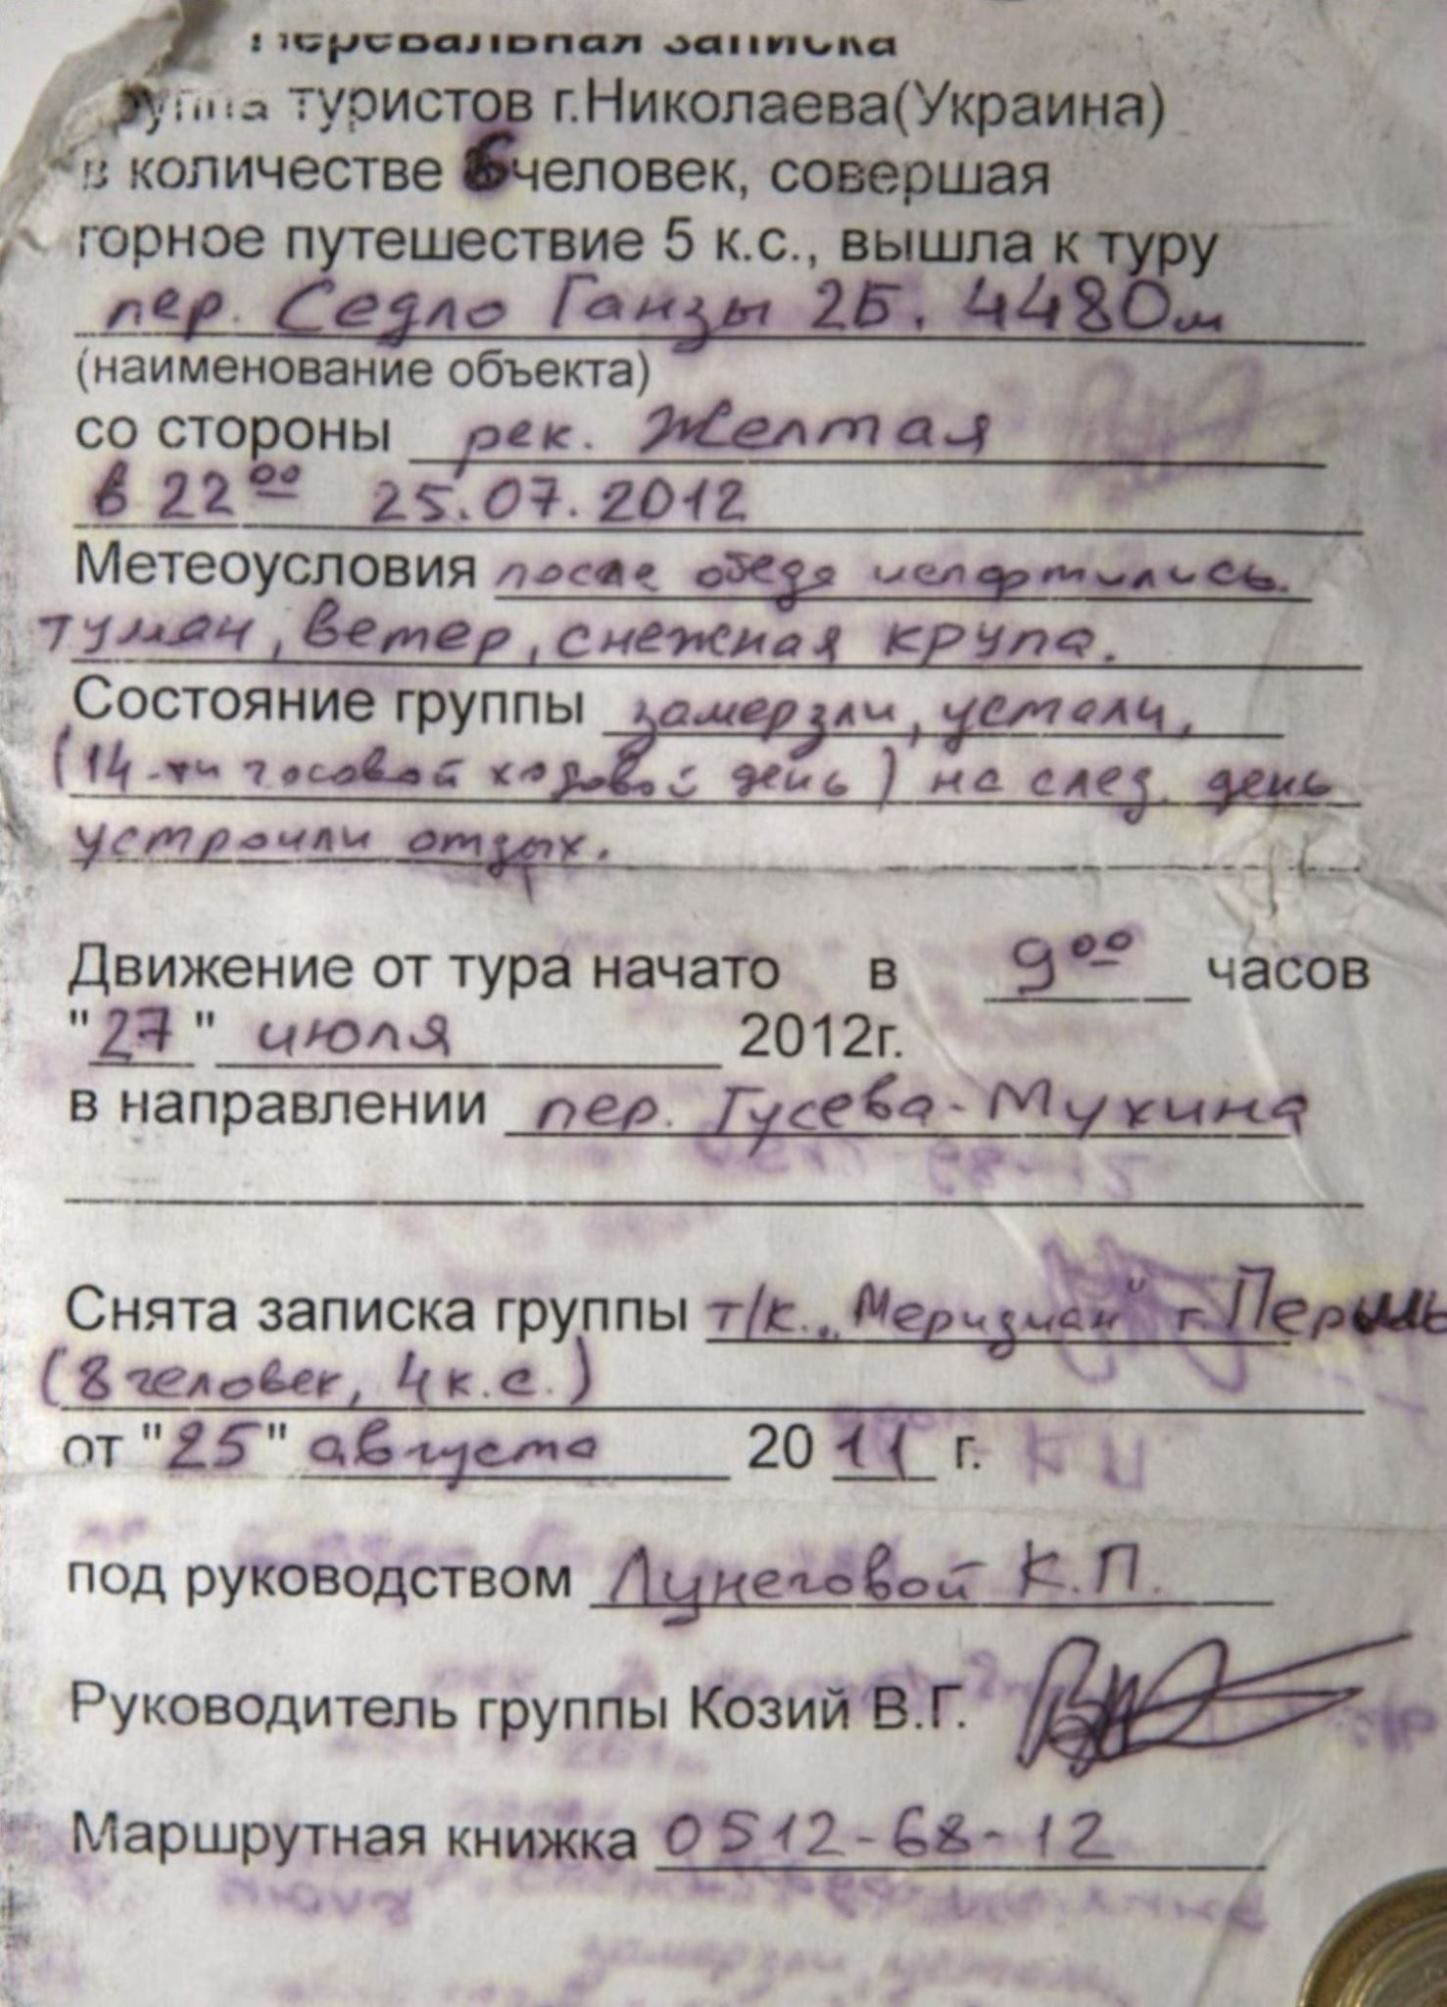 Перевальная записка
Группа туристов г.Николаева(Украина)
в количестве 6 человек, совершая
горное путешествие 5 к.с., вышла к туру
пер. Седло Ганзы 2Б. 4480м
(наименование объекта)
со стороны рек. Желтая
в 22⁰⁰ 25.07.2012
Метеоусловия после обеда испортились.
туман, ветер, снежная крупа.
Состояние группы замерзли, устали,
(14-ти часовой ходовой день) на след. день
устроили отдых.
Движение от тура начато в 9⁰⁰ часов
"27" июля 2012г.
в направлении пер. Гусева-Мухина
Снята записка группы т/к. „Меридиан" г. Пермь
(8 человек, 4 к.с.)
от "25" августа 2011 г.
под руководством Лунеговой К.П.
Руководитель группы Козий В.Г.
Маршрутная книжка 0512-68-12